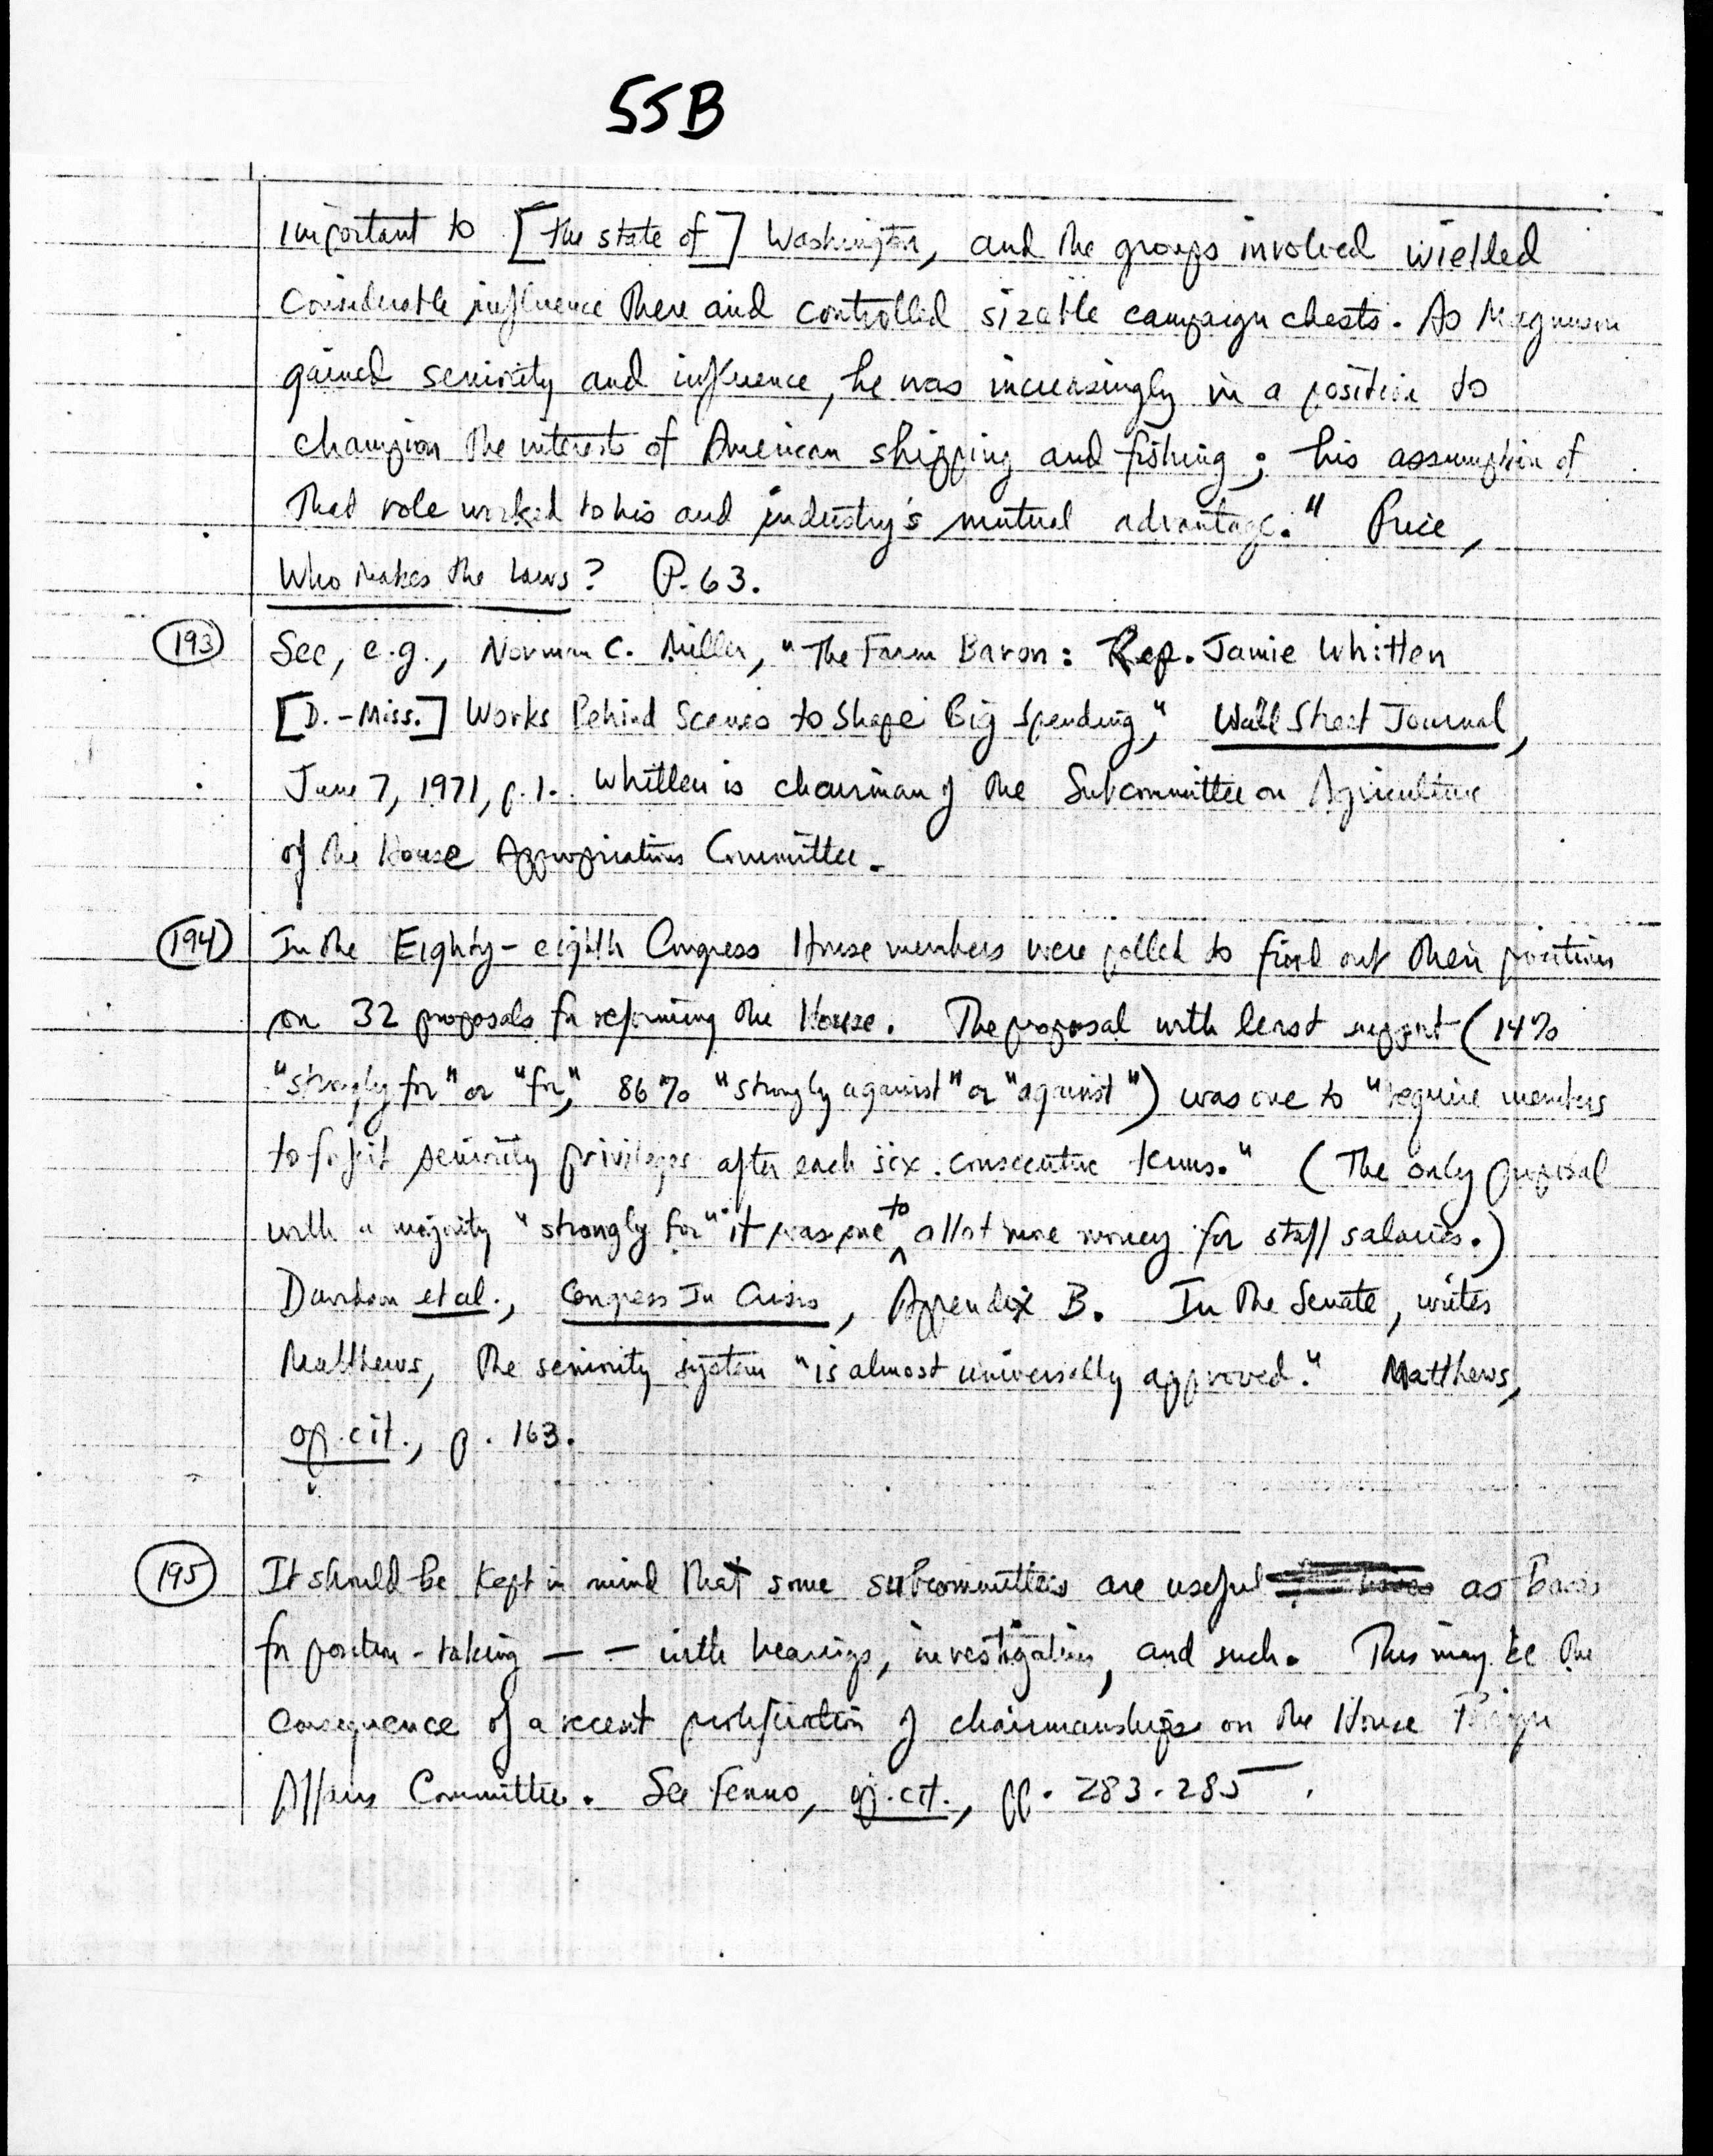 55B
important to [the state of] Washington, and the groups involved wielded
considerable influence there and controlled sizable campaign chests. As Magnuson
gained seniority and influence, he was increasingly in a position to
champion the interests of American shipping and fishing; his assumption of
that role worked to his and industry's mutual advantage." Price,
Who Makes the Laws? P. 63.
193 See, e.g., Norman C. Miller, "The Farm Baron: Rep. Jamie Whitten
[D.-Miss.] Works Behind Scenes to Shape Big Spending," Wall Street Journal,
June 7, 1971, p. 1. Whitten is chairman of the Subcommittee on Agriculture
of the House Appropriations Committee.
194 In the Eighty-eighth Congress House members were polled to find out their positions
on 32 proposals for reforming the House. The proposal with least support (14%
"strongly for" or "for," 86% "strongly against" or "against") was one to "require members
to forfeit seniority privileges after each six consecutive terms." (The only proposal
with a majority "strongly for" it was one to allot more money for staff salaries.)
Davidson et al., Congress In Crisis, Appendix B. In the Senate, writes
Matthews, the seniority system "is almost universally approved." Matthews,
op. cit., p. 163.
195 It should be kept in mind that some subcommittees are useful as bases
for position-taking -- with hearings, investigations, and such. This may be the
consequence of a recent proliferation of chairmanships on the House Foreign
Affairs Committee. See Fenno, op. cit., pp. 283-285.